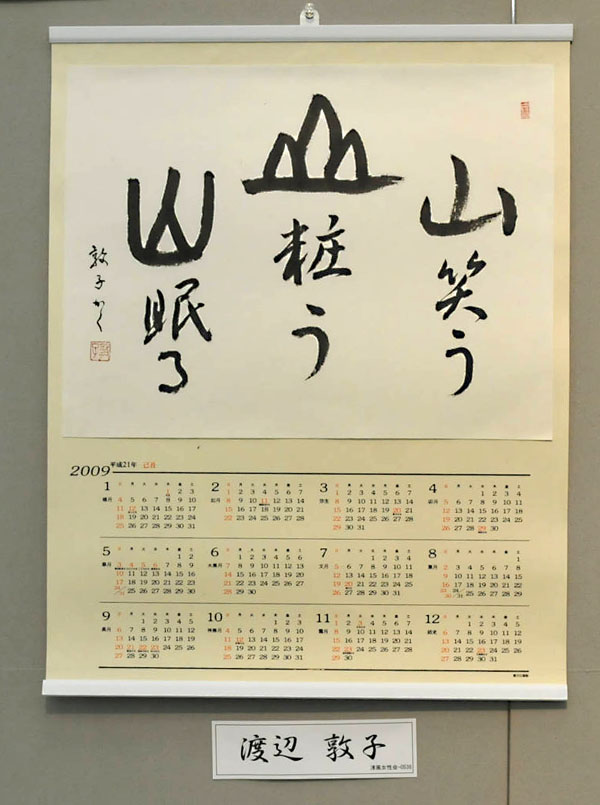 山笑う
山粧う
山眠る
敦子かく
2009 平成21年 己丑
1
日 月 火 水 木 金 土
1 2 3
4 5 6 7 8 9 10
11 12 13 14 15 16 17
18 19 20 21 22 23 24
25 26 27 28 29 30 31
2
日 月 火 水 木 金 土
1 2 3 4 5 6 7
8 9 10 11 12 13 14
15 16 17 18 19 20 21
22 23 24 25 26 27 28
3 弥生
日 月 火 水 木 金 土
1 2 3 4 5 6 7
8 9 10 11 12 13 14
15 16 17 18 19 20 21
22 23 24 25 26 27 28
29 30 31
4 卯月
日 月 火 水 木 金 土
1 2 3 4
5 6 7 8 9 10 11
12 13 14 15 16 17 18
19 20 21 22 23 24 25
26 27 28 29 30
5
日 月 火 水 木 金 土
1 2
3 4 5 6 7 8 9
10 11 12 13 14 15 16
17 18 19 20 21 22 23
24/31 25 26 27 28 29 30
6 水無月
日 月 火 水 木 金 土
1 2 3 4 5 6
7 8 9 10 11 12 13
14 15 16 17 18 19 20
21 22 23 24 25 26 27
28 29 30
7 文月
日 月 火 水 木 金 土
1 2 3 4
5 6 7 8 9 10 11
12 13 14 15 16 17 18
19 20 21 22 23 24 25
26 27 28 29 30 31
8 葉月
日 月 火 水 木 金 土
1
2 3 4 5 6 7 8
9 10 11 12 13 14 15
16 17 18 19 20 21 22
23/30 24/31 25 26 27 28 29
9 長月
日 月 火 水 木 金 土
1 2 3 4 5
6 7 8 9 10 11 12
13 14 15 16 17 18 19
20 21 22 23 24 25 26
27 28 29 30
10 神無月
日 月 火 水 木 金 土
1 2 3
4 5 6 7 8 9 10
11 12 13 14 15 16 17
18 19 20 21 22 23 24
25 26 27 28 29 30 31
11 霜月
日 月 火 水 木 金 土
1 2 3 4 5 6 7
8 9 10 11 12 13 14
15 16 17 18 19 20 21
22 23 24 25 26 27 28
29 30
12 師走
日 月 火 水 木 金 土
1 2 3 4 5
6 7 8 9 10 11 12
13 14 15 16 17 18 19
20 21 22 23 24 25 26
27 28 29 30 31
渡辺 敦子